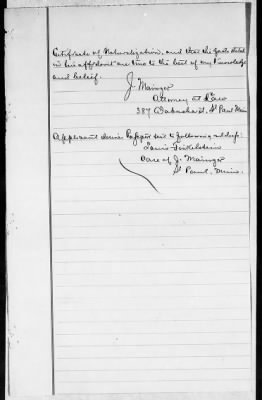 Certificate of Naturalization, and that the facts stated
in his affidavit are true to the best of my knowledge
and belief.
J. Mainzer
Attorney at Law
287 Wabasha St. St Paul Minn
Applicant desires Passport sent to following address:
Louis Finkelstein
Care of J. Mainzer
St Paul, Minn.